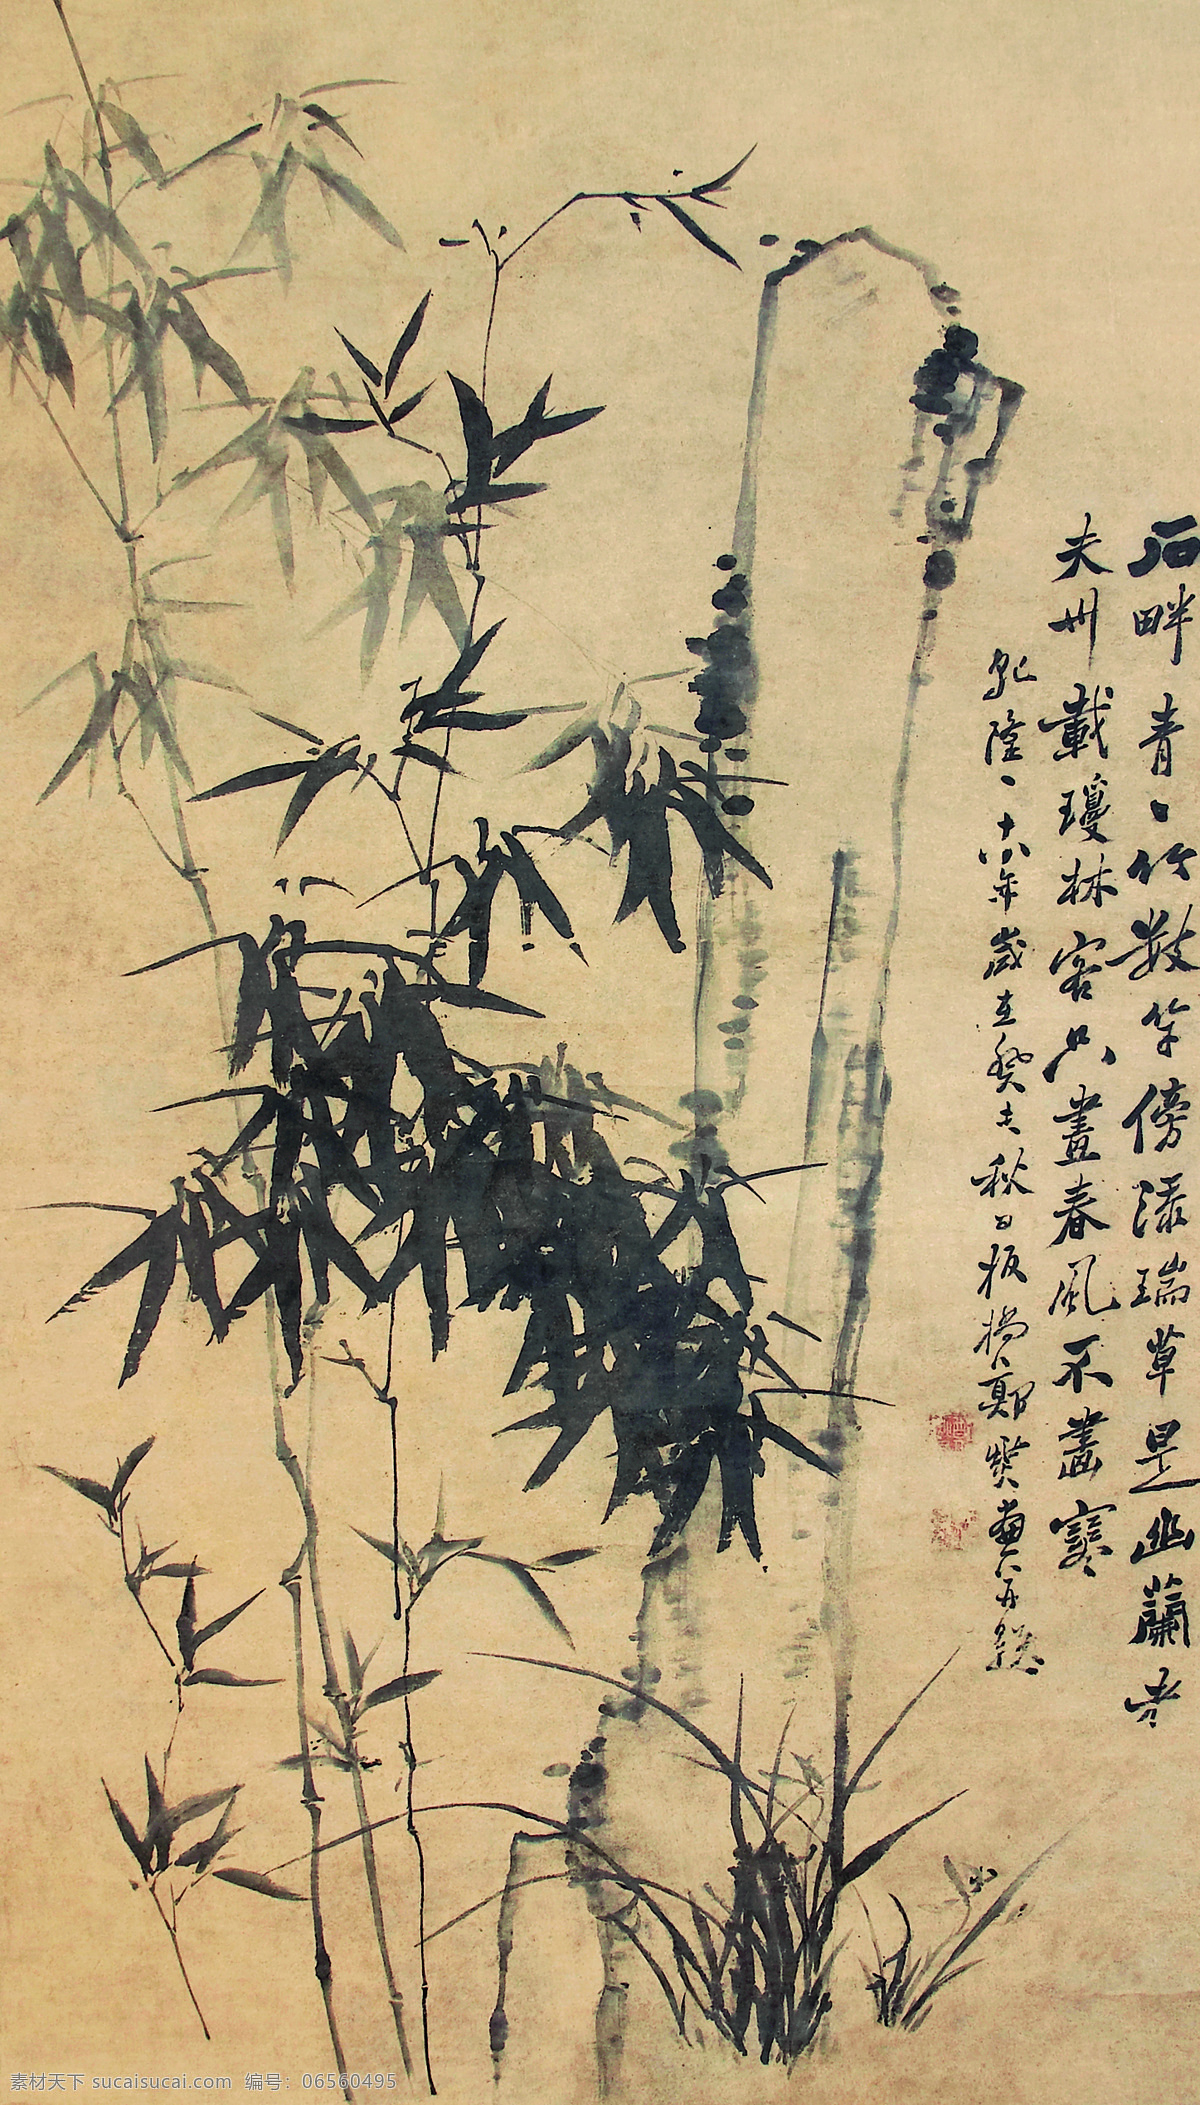 石畔青〻竹數竿傍添瑞草是幽蘭老
夫卅載瓊林客只畫春風不畫寒
乾隆一十八年歲在癸酉秋日板橋鄭燮畫并題
素材天下 sucaisucai.com 编号：06560495